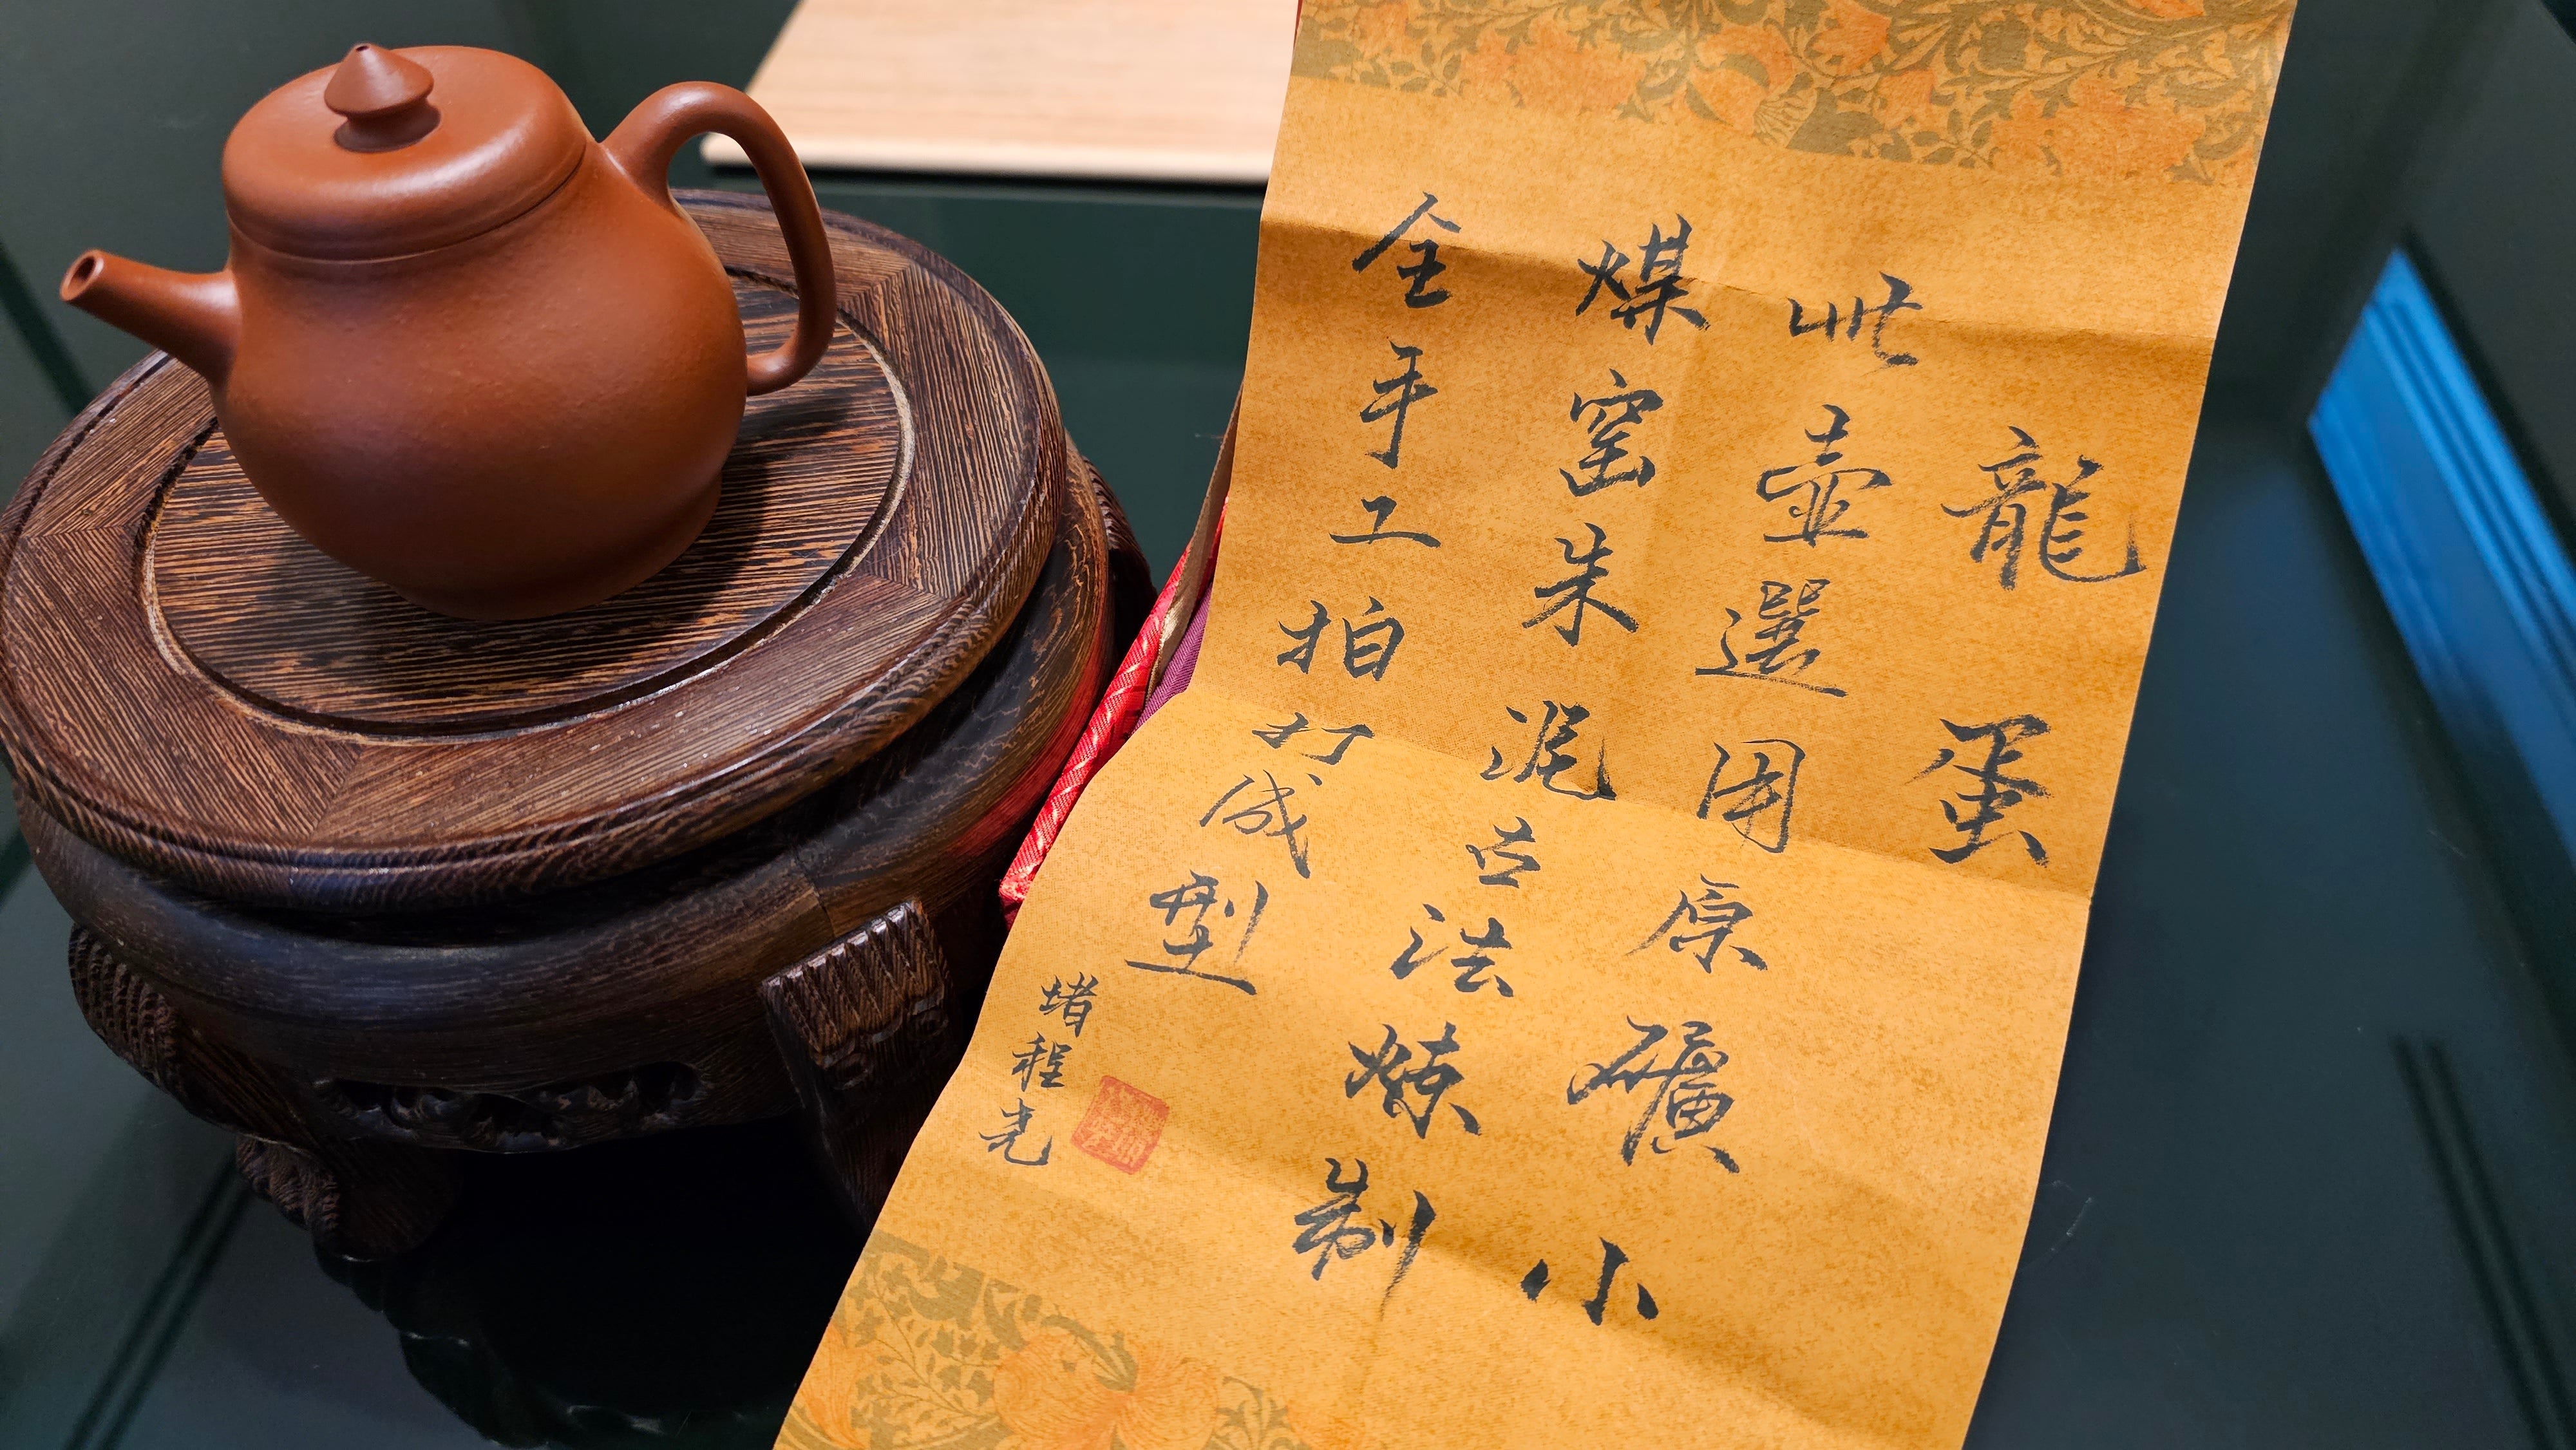 龍蛋
此壺選用原礦小
煤窑朱泥古法煉制
全手工拍打成型
堵程光